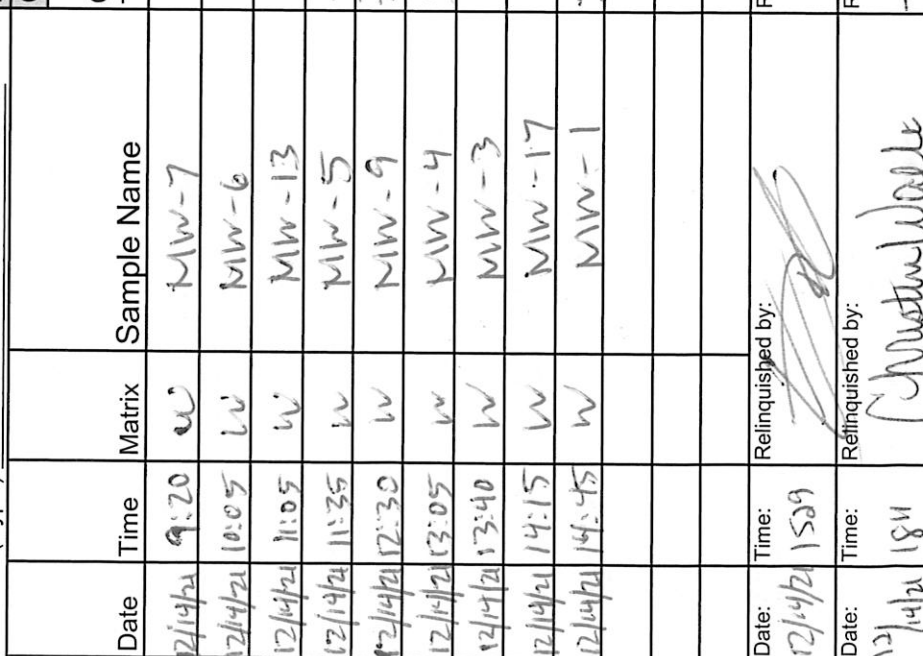 Date Time Matrix Sample Name
12/14/21 9:20 W MW-7
12/14/21 10:05 W MW-6
12/14/21 11:05 W MW-13
12/14/21 11:35 W MW-5
12/14/21 12:30 W MW-9
12/14/21 13:05 W MW-4
12/14/21 13:40 W MW-3
12/14/21 14:15 W MW-17
12/14/21 14:45 W MW-1
Date: Time: Relinquished by:
12/14/21 1529
Date: Time: Relinquished by:
12/14/21 1811